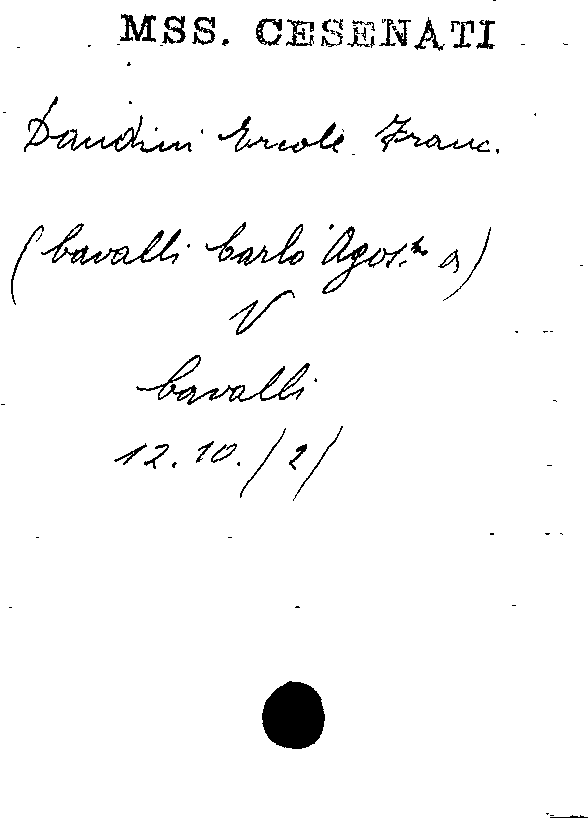 MSS. CESENATI
Dandini Ercole Franc.
(Cavalli Carlo Agos.no a)
V
Cavalli
12.10./2/